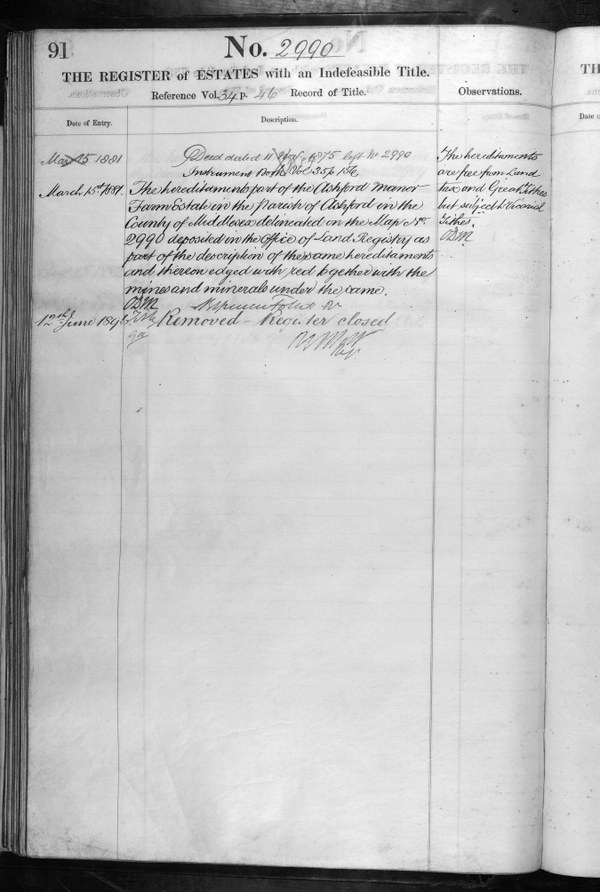 91
No. 2990
THE REGISTER of ESTATES with an Indefeasible Title.
Reference Vol. 34 p. 46 Record of Title.
Observations.
Date of Entry.
Description.
Mar 15 1881
Deed dated 11 1875 No 2990
Instrument Book Vol 35 p 156
March 15th 1881.
The hereditaments part of the Ashford Manor
Farm Estate in the Parish of Ashford in the
County of Middlesex delineated on the Map No.
2990 deposited in the office of Land Registry as
part of the description of the same hereditaments
and thereon edged with red together with the
mines and minerals under the same.
The hereditaments
are free from Land
tax and Great Tithes
but subject to Vicarial
Tithes.
June Removed - Register closed